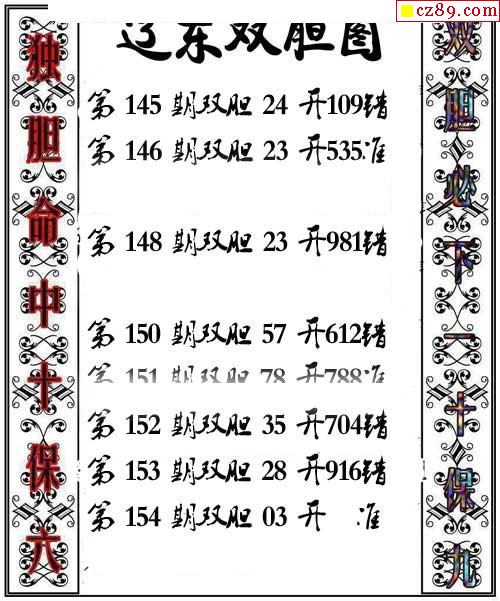 cz89.com
辽东双胆图
独胆命中十保六
第 145 期双胆 24 开109错
第 146 期双胆 23 开535准
第 148 期双胆 23 开981错
第 150 期双胆 57 开612错
第 151 期双胆 78 开788准
第 152 期双胆 35 开704错
第 153 期双胆 28 开916错
第 154 期双胆 03 开 准
双胆必下一十保九